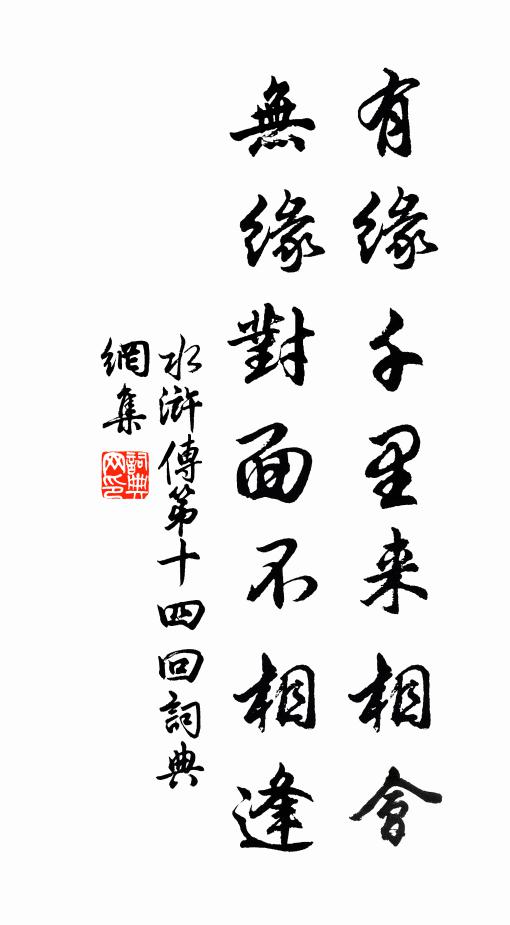 有緣千里来相會
無緣對面不相逢
水滸傳第十四回詞典
網集
詞典網印